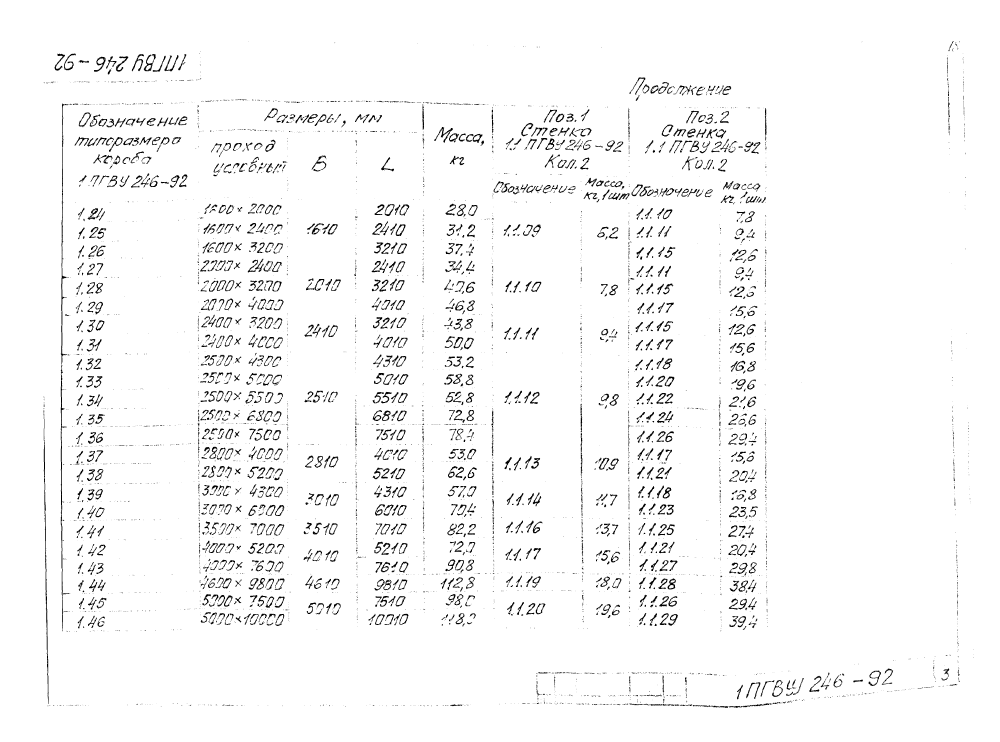 18
1ПГВУ 246-92
Продолжение
Обозначение типоразмера короба 1ПГВУ 246-92 | Размеры, мм | Масса, кг | Поз.1 Стенка 1.1 ПГВУ 246-92 Кол.2 | Поз.2 Стенка 1.1 ПГВУ 246-92 Кол.2
проход условный | Б | L | Обозначение | Масса, кг, 1шт | Обозначение | Масса кг, 1шт
1.24 1600×2000 2010 28,0 1.1.10 7,8
1.25 1600×2400 1610 2410 31,2 1.1.09 6,2 1.1.11 9,4
1.26 1600×3200 3210 37,4 1.1.15 12,6
1.27 2000×2400 2410 34,4 1.1.11 9,4
1.28 2000×3200 2010 3210 40,6 1.1.10 7,8 1.1.15 12,6
1.29 2000×4000 4010 46,8 1.1.17 15,6
1.30 2400×3200 2410 3210 43,8 1.1.11 9,4 1.1.15 12,6
1.31 2400×4000 4010 50,0 1.1.17 15,6
1.32 2500×4300 4310 53,2 1.1.18 16,8
1.33 2500×5000 5010 58,8 1.1.20 19,6
1.34 2500×5500 2510 5510 62,8 1.1.12 9,8 1.1.22 21,6
1.35 2500×6800 6810 72,8 1.1.24 26,6
1.36 2500×7500 7510 78,4 1.1.26 29,4
1.37 2800×4000 2810 4010 53,0 1.1.13 10,9 1.1.17 15,6
1.38 2800×5200 5210 62,6 1.1.21 20,4
1.39 3000×4300 3010 4310 57,0 1.1.14 11,7 1.1.18 16,8
1.40 3000×6000 6010 70,4 1.1.23 23,5
1.41 3500×7000 3510 7010 82,2 1.1.16 13,7 1.1.25 27,4
1.42 4000×5200 4010 5210 72,0 1.1.17 15,6 1.1.21 20,4
1.43 4000×7600 7610 90,8 1.1.27 29,8
1.44 4600×9800 4610 9810 112,8 1.1.19 18,0 1.1.28 38,4
1.45 5000×7500 5010 7510 98,0 1.1.20 19,6 1.1.26 29,4
1.46 5000×10000 10010 118,0 1.1.29 39,4
1ПГВУ 246-92 3